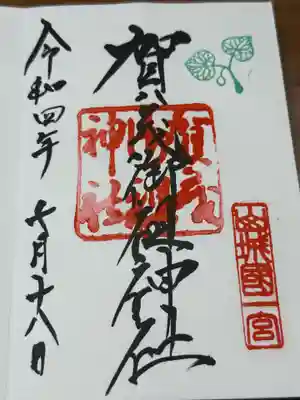 山城國一宮
賀茂御祖神社
賀茂御祖神社
令和四年 七月十八日